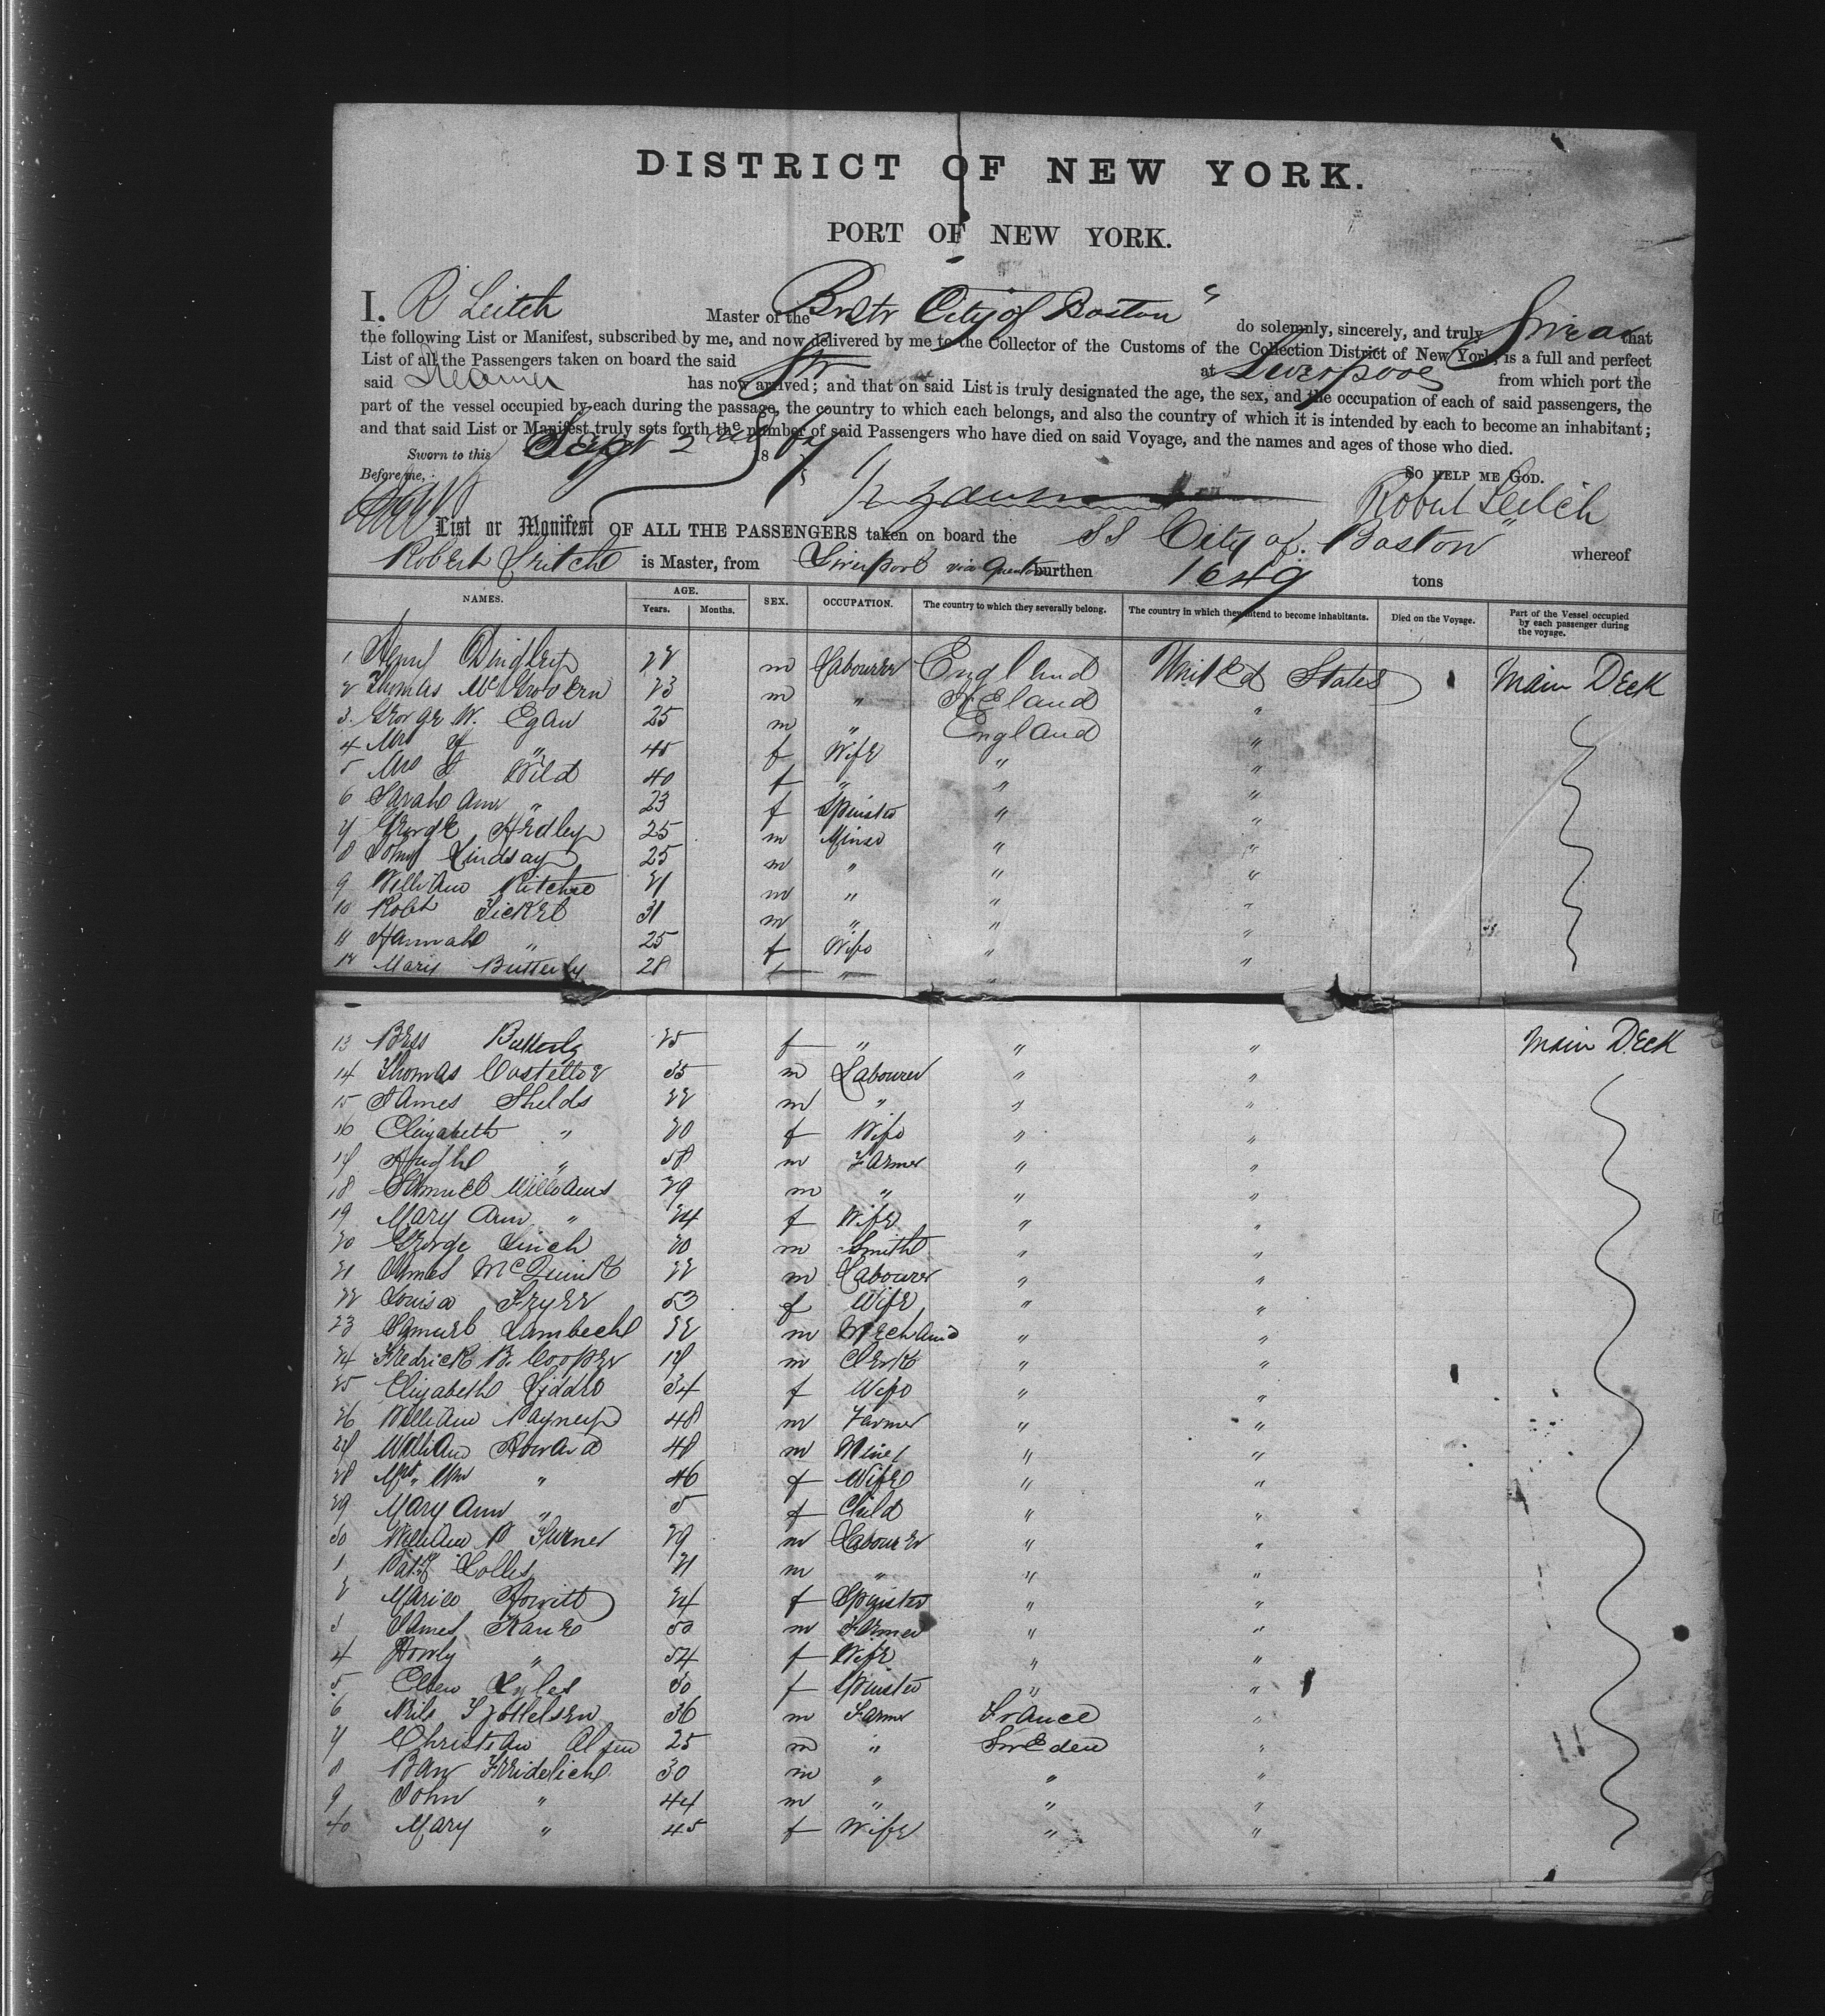 DISTRICT OF NEW YORK.
PORT OF NEW YORK.
I, R Leitch Master of the Br Str City of Boston" do solemnly, sincerely, and truly Swear that
the following List or Manifest, subscribed by me, and now delivered by me to the Collector of the Customs of the Collection District of New York, is a full and perfect
List of all the Passengers taken on board the said Str at Liverpool from which port the
said Steamer has now arrived; and that on said List is truly designated the age, the sex, and the occupation of each of said passengers, the
part of the vessel occupied by each during the passage, the country to which each belongs, and also the country of which it is intended by each to become an inhabitant;
and that said List or Manifest truly sets forth the number of said Passengers who have died on said Voyage, and the names and ages of those who died.
Sworn to this Sept 2nd 1867
So HELP ME GOD.
Before me,
Robert Leitch
List or Manifest OF ALL THE PASSENGERS taken on board the SS City of Boston" whereof
Robert Leitch is Master, from Liverpool via burthen 1649 tons
NAMES. AGE. Years. Months. SEX. OCCUPATION. The country to which they severally belong. The country in which they intend to become inhabitants. Died on the Voyage. Part of the Vessel occupied by each passenger during the voyage.
1 Henry Dingley 22 m Labourer England United States Main Deck
2 Thomas McGovern 23 m " Ireland "
3 George W. Egan 25 m " England "
4 Mrs " f Wife " "
5 Mrs Wild 40 f " " "
6 Sarah Ann " 23 f Spinster " "
7 George Hedley 25 m Miner " "
8 John Lindsay 25 m " " "
9 William Ritchie 21 m " " "
10 Robt Tickel 31 m " " "
11 Hannah " 25 f Wife " "
12 Mary Butterly 28 f " " "
13 Bess Butterly 25 f " " " Main Deck
14 Thomas Costelloe 35 m Labourer " "
15 James Shelds 22 m " " "
16 Elizabeth " 20 f Wife " "
17 Hugh " 58 m Farmer " "
18 Samuel Williams 29 m " " "
19 Mary Ann " 24 f Wife " "
20 George Linch 20 m Smith " "
21 James McQuirk 22 m Labourer " "
22 Louisa Fryer 53 f Wife " "
23 Samuel Lambech 32 m Merchant " "
24 Fredrick B. Cooper 17 m Clerk " "
25 Elizabeth Liddle 34 f Wife " "
26 William 48 m Farmer " "
27 William Howard 48 m Miner " "
28 Mrs Wm " 46 f Wife " "
29 Mary Ann " 5 f Child " "
30 William P Turner 29 m Labourer " "
1 Patk Colles 21 m " " "
2 Howitt 24 f Spinster " "
3 James Kane 50 m Farmer " "
4 " 54 f Wife " "
5 Ellen Lyles 30 f Spinster " "
6 Nils 36 m Farmer France "
7 Christian 25 m " Sweden "
8 30 m " " "
9 John " 44 m " " "
40 Mary " 45 f Wife " "